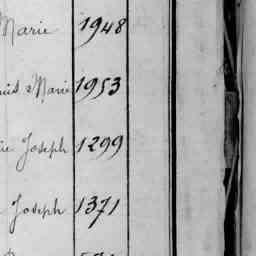 Marie 1948
Marie 1953
Joseph 1299
Joseph 1371